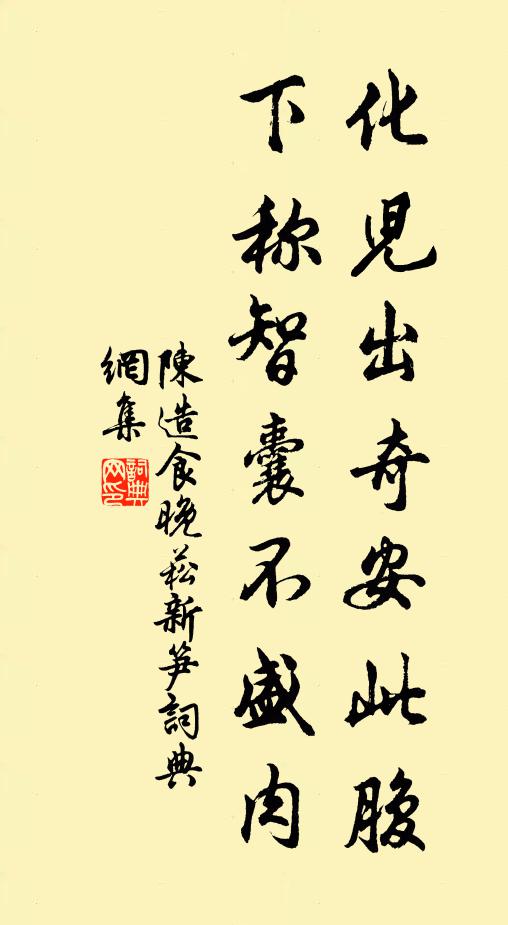 化児出奇安此腹
下称智囊不盛肉
陳造食晚菘新笋詞典
網集
詞典
网印